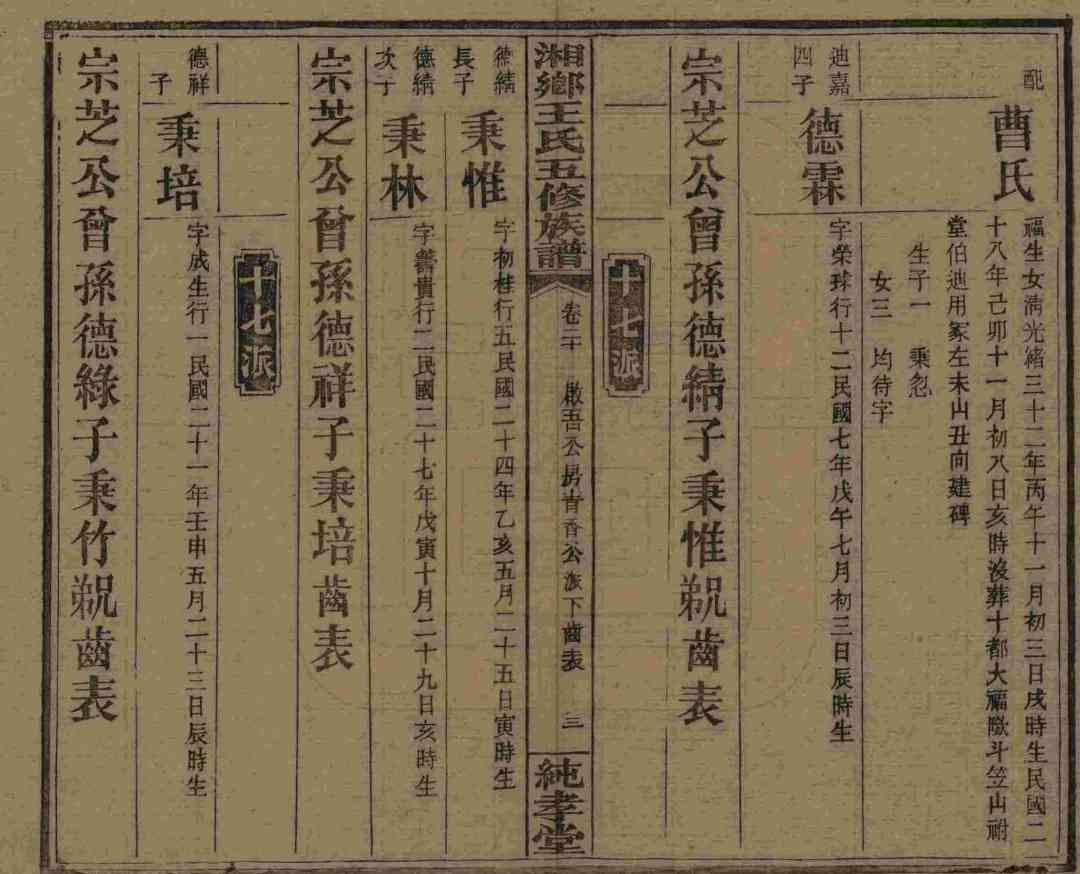 配
曹氏
福生女清光緒三十二年丙午十一月初三日戌時生民國二
十八年己卯十一月初八日亥時沒葬十都大福歐斗笠山祔
堂伯迪用冢左未山丑向建碑
生子一　秉忽
女三　均待字
迪嘉
四子
德霖
字榮球行十二民國七年戊午七月初三日辰時生
宗芝公曾孫德綪子秉惟覐齒表
十七派
湘鄉王氏五修族譜
卷二十　啟吾公房青香公派下齒表　三
純孝堂
德綪
長子
秉惟
字初桂行五民國二十四年乙亥五月二十五日寅時生
德綪
次子
秉林
字善貴行二民國二十七年戊寅十月二十九日亥時生
宗芝公曾孫德祥子秉培齒表
十七派
德祥
子
秉培
字成生行一民國二十一年壬申五月二十三日辰時生
宗芝公曾孫德綠子秉竹覐齒表